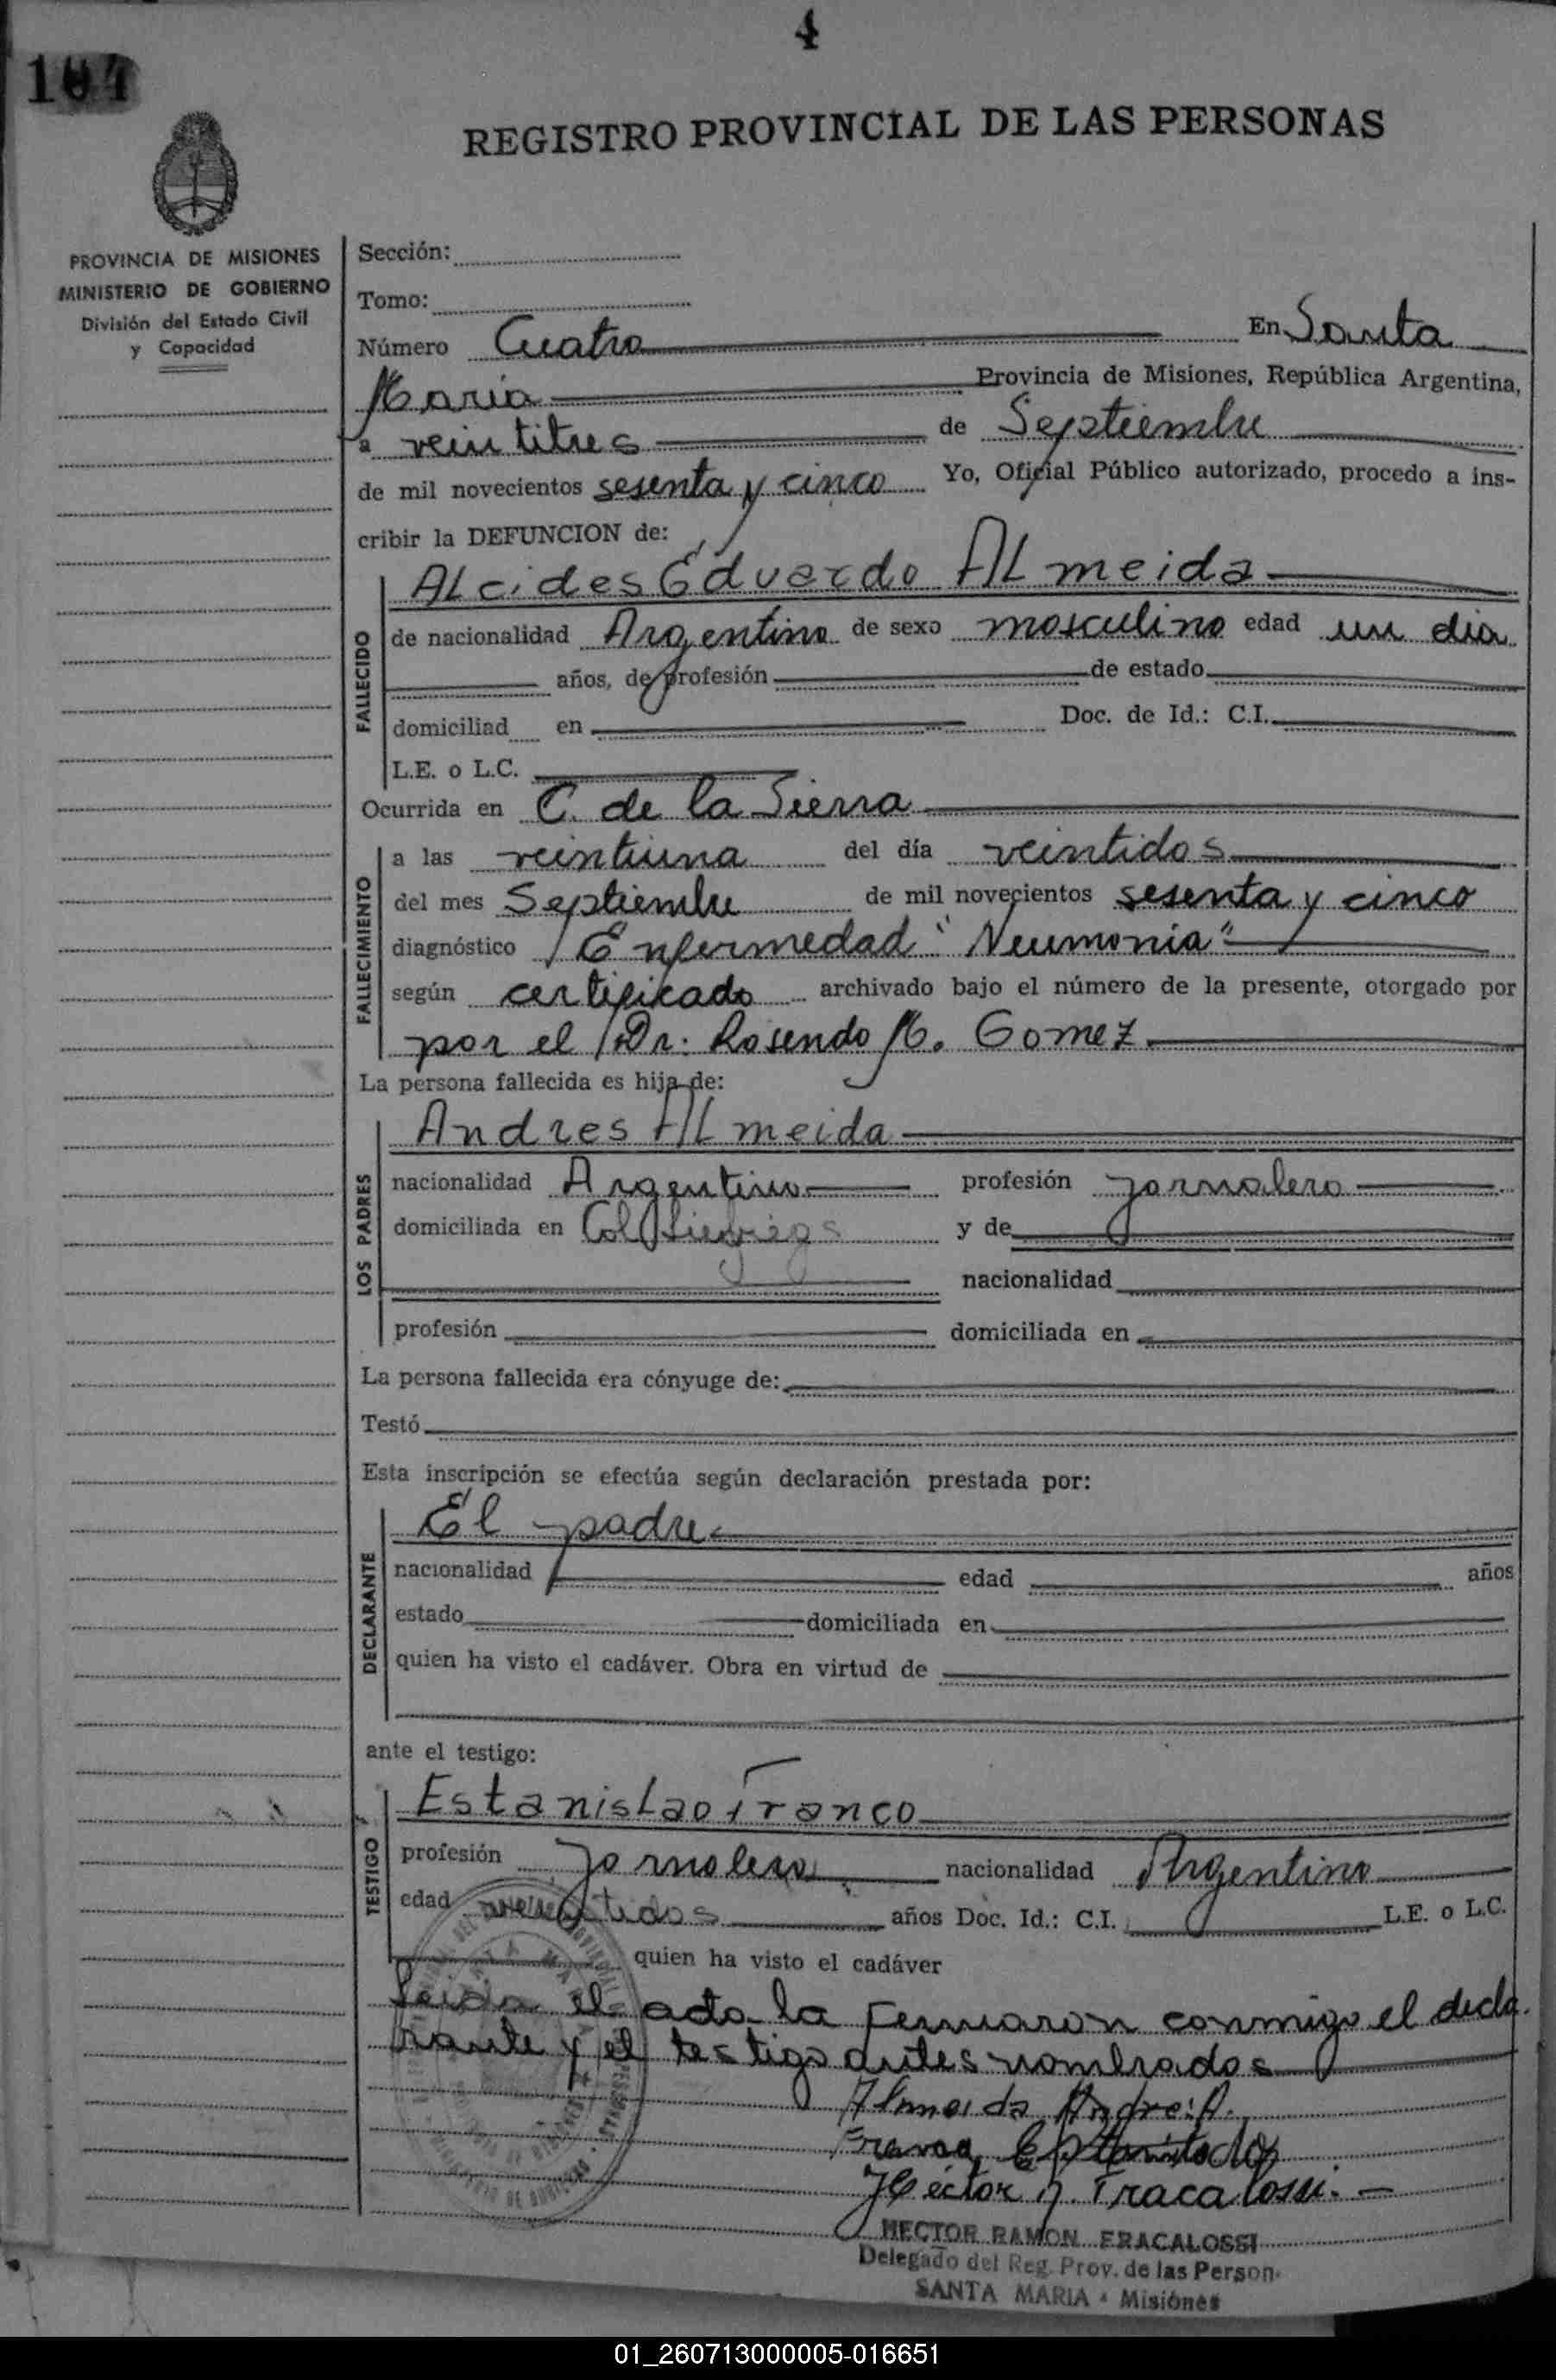 4
104
REGISTRO PROVINCIAL DE LAS PERSONAS
PROVINCIA DE MISIONES
MINISTERIO DE GOBIERNO
División del Estado Civil
y Capacidad
Sección:
Tomo:
Número Cuatro En Santa
Maria Provincia de Misiones, República Argentina,
a veintitres de Septiembre
de mil novecientos sesenta y cinco Yo, Oficial Público autorizado, procedo a ins-
cribir la DEFUNCION de:
ALcides Eduardo ALmeida
FALLECIDO
de nacionalidad Argentino de sexo masculino edad un dia
años, de profesión de estado
domiciliad en Doc. de Id.: C.I.
L.E. o L.C.
Ocurrida en C. de la Sierra
FALLECIMIENTO
a las veintiuna del día veintidos
del mes Septiembre de mil novecientos sesenta y cinco
diagnóstico Enfermedad "Neumonia"
según certificado archivado bajo el número de la presente, otorgado por
por el Dr: Rosendo M. Gomez
La persona fallecida es hija de:
LOS PADRES
Andres ALmeida
nacionalidad Argentino profesión jornalero
domiciliada en Col y de
nacionalidad
profesión domiciliada en
La persona fallecida era cónyuge de:
Testó
Esta inscripción se efectúa según declaración prestada por:
DECLARANTE
El padre
nacionalidad edad años
estado domiciliada en
quien ha visto el cadáver. Obra en virtud de
ante el testigo:
TESTIGO
EstanisLao Franco
profesión Jornalero nacionalidad Argentino
edad años Doc. Id.: C.I. L.E. o L.C.
quien ha visto el cadáver
Leida el acta la firmaron conmigo el decla
rante y el testigo antes nombrados
Almeida Andre
Franco
Héctor R. Fracalossi.-
HECTOR RAMON FRACALOSSI
Delegado del Reg. Prov. de las Person.
SANTA MARIA - Misiones
01_260713000005-016651